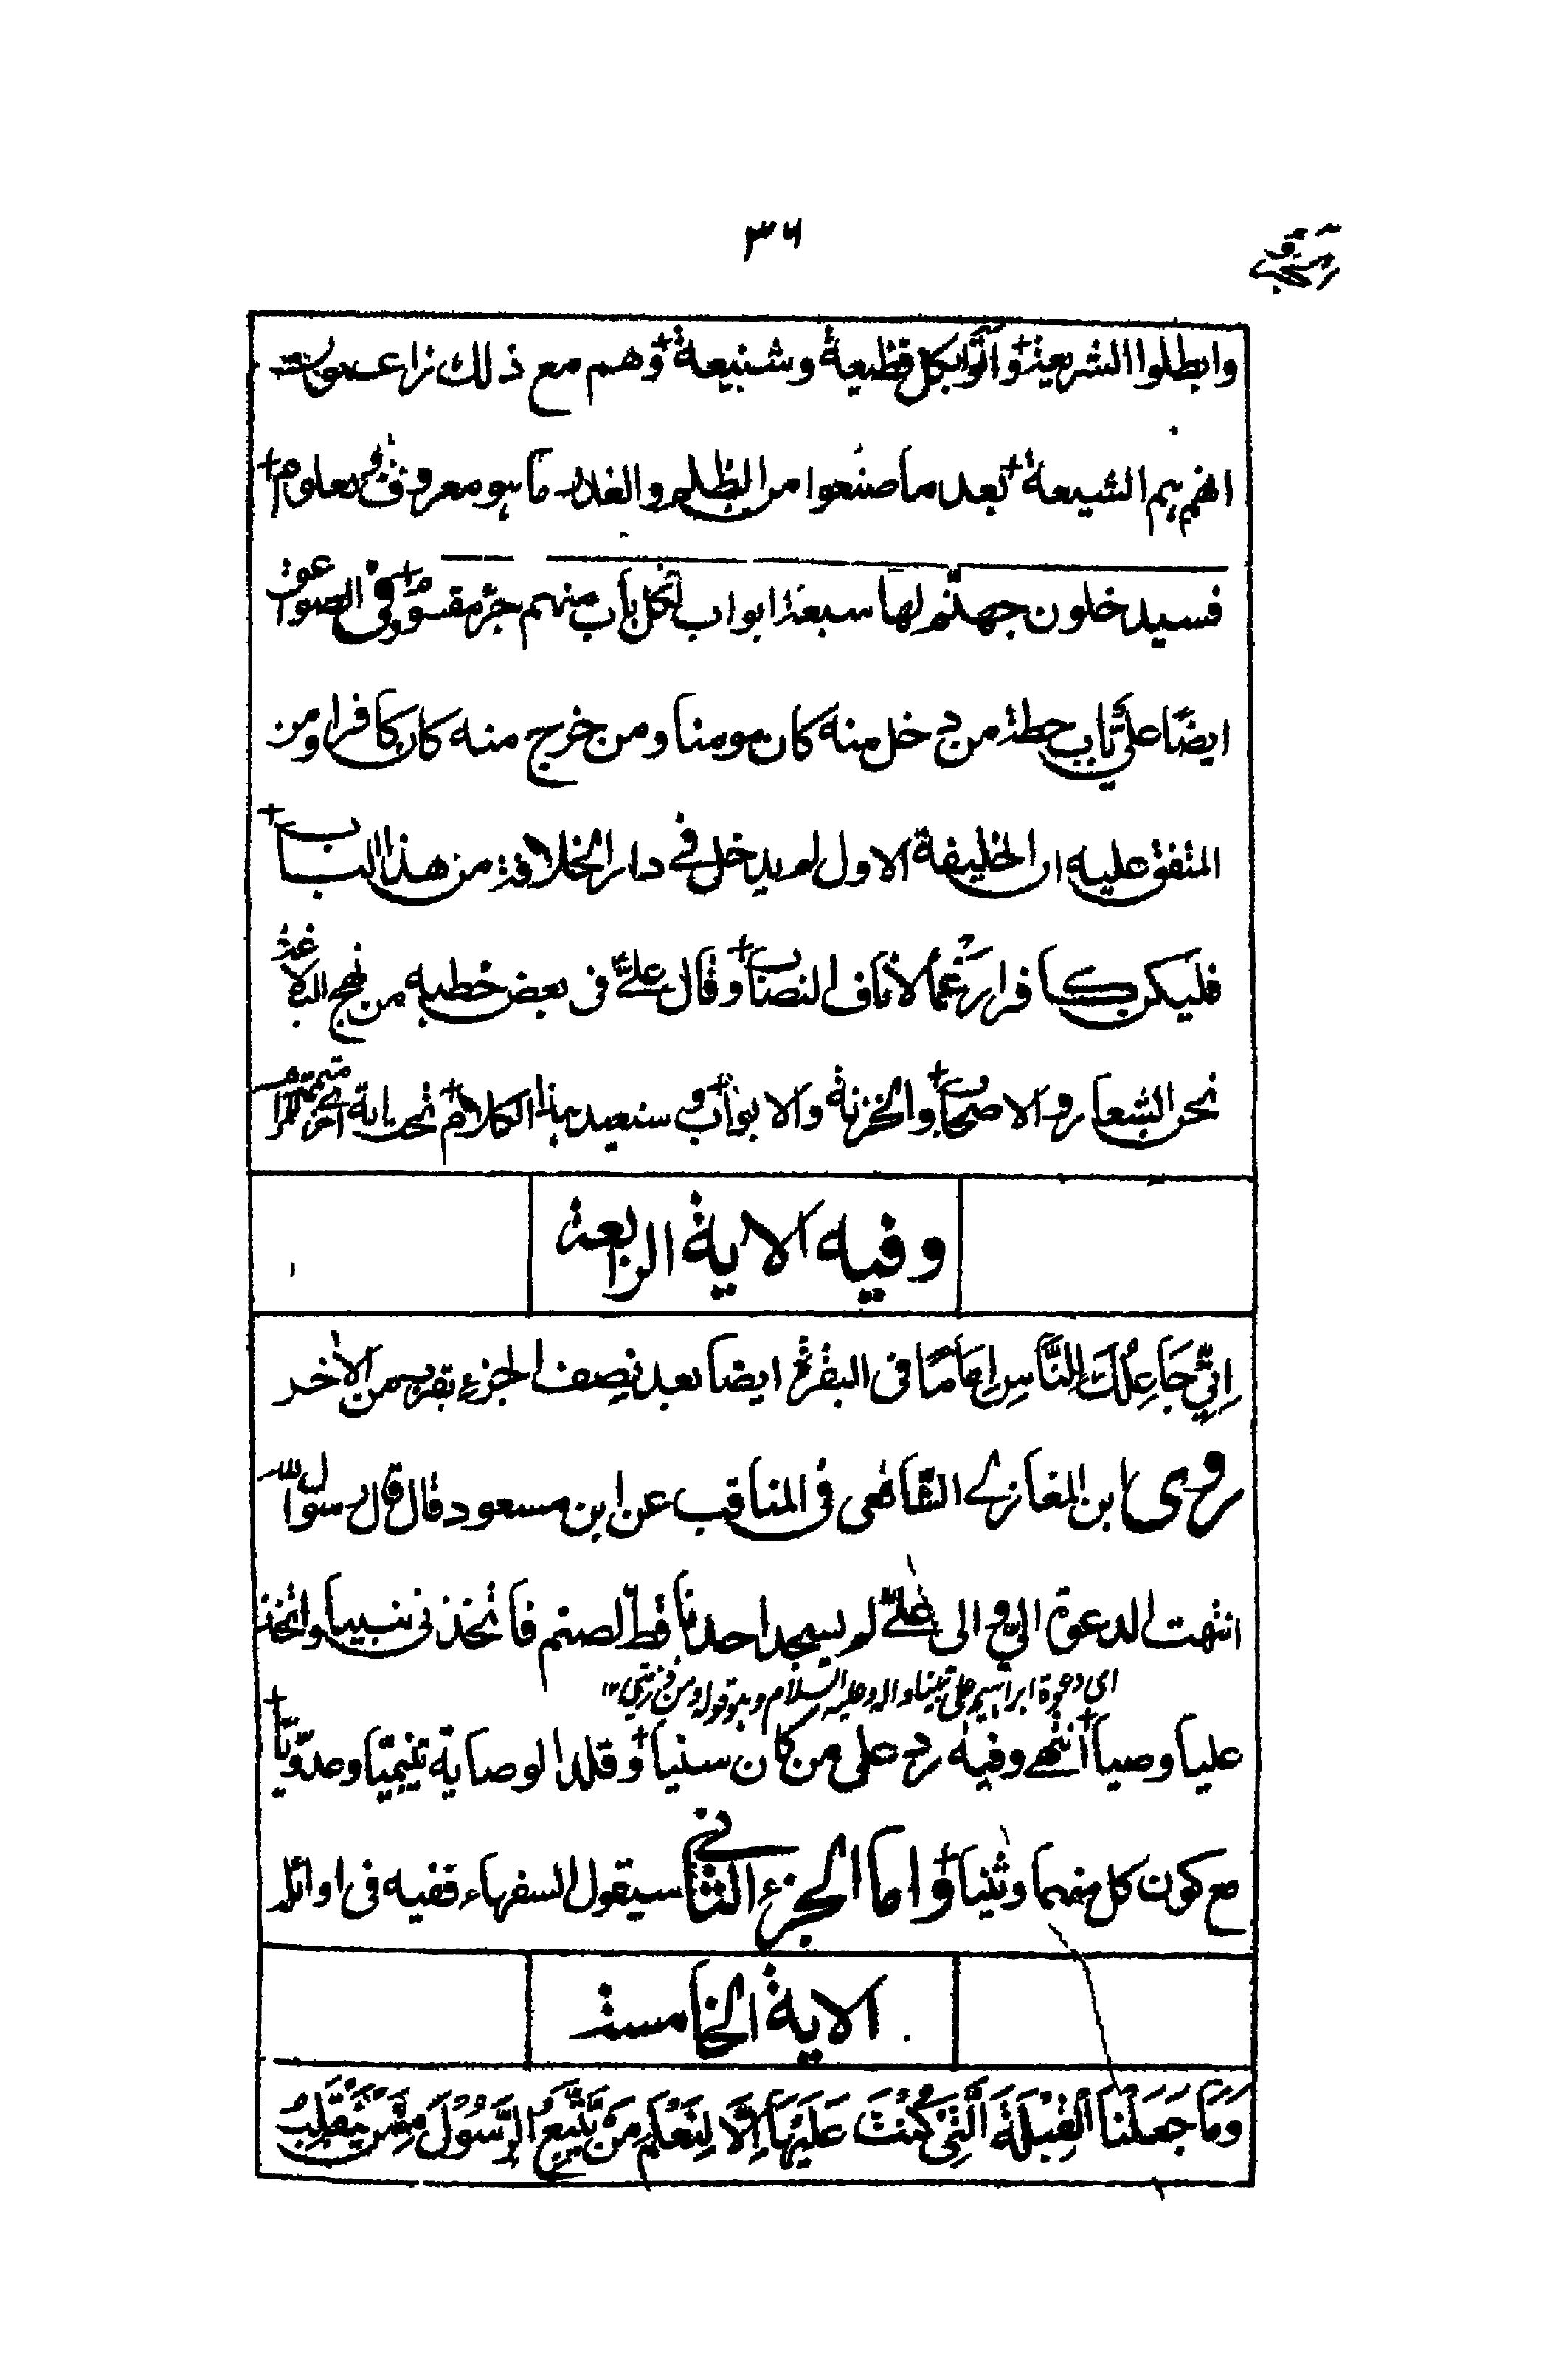 ٣٦
وابطلوا الشريعة و اتوا بكل فظيعة وشنيعة وهم مع ذلك زاعمون
انهم هم الشيعة بعد ما صنعوا من الظلم والغدر ما هو معروف و معلوم
فسيدخلون جهنم لها سبعة ابواب لكل باب منهم جزء مقسوم وفى الصواعق
ايضا علي باب حطة من دخل منه كان مومنا ومن خرج منه كان كافرا ومن
المتفق عليه ان الخليفة الاول لم يدخل فى دار الخلافة من هذا الباب
فليكن كافرا رغما لأناف النصاب وقال علي فى بعض خطبه من نهج البلاغة
نحن الشعار و الاصحاب والخزنة والابواب و سنعيد هذا الكلام تحت اية اخرى
وفيه الاية الرابعة
اِنِّي جَاعِلُكَ لِلنَّاسِ اِمَامًا فى البقرة ايضا بعد نصف الجزء بقريب من الأخر
روى ابن المغازلے الشافعى فى المناقب عن ابن مسعود قال قال رسول الله
انتهت الدعوة الي و الى علي لم يسجد احدنا قط لصنم فاتخذنى نبيا واتخذ
اى دعوة ابراهيم على نبينا واله وعليه السلام وهو قوله ومن ذريتي ١٢
عليا وصيا انتهے وفيه رد على من كان سنيا و قلد الوصاية تيميا وعدويا
مع كون كل منهما وثنيا و اما الجزء الثانى سيقول السفهاء ففيه فى اوائله
الاية الخامسة
وَمَا جَعَلْنَا الْقِبْلَةَ الَّتِى كُنْتَ عَلَيْهَا اِلَّا لِنَعْلَمَ مَنْ يَّتَّبِعُ الرَّسُوْلَ مِمَّنْ يَّنْقَلِبُ